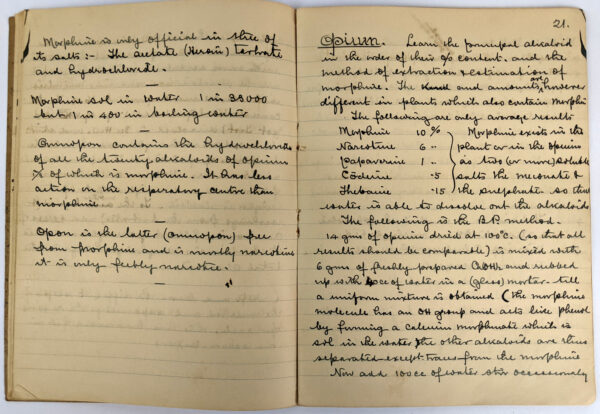 Morphine is only official in three of
its salts :- The acetate (Heroin) tartrate
and hydrochloride.
Morphine sol in water 1 in 33000
but 1 in 400 in boiling water
Omnopon contains the hydrochlorides
of all the twenty alkaloids of opium
½ of which is morphine. It has less
action on the respiratory centre than
morphine.
Opon is the latter (omnopon) free
from morphine and is mostly narcotine
it is only feebly narcotic.
21.
Opium. Learn the principal alkaloid
in the order of their % content. and the
method of extraction & estimation of
morphine. The kind and amounts are however
different in plants which also contain morphi
The following are only average results
Morphine 10 %
Narcotine 6 "
Papaverine 1 "
Codeine .5
Thebaine .15
Morphine exists in the
plant or in the opium
as two (or more) soluble
salts the meconate &
the sulphate so that
water is able to dissolve out the alkaloids
The following is the B.P. method.
14 gms of opium dried at 100°C. (so that all
results should be comparable) is mixed with
6 gms of freshly prepared Ca(OH)2 and rubbed
up with 40cc of water in a (glass) mortar till
a uniform mixture is obtained (the morphine
molecule has an OH group and acts like phenol
by forming a calcium morphinate which is
sol in the water & the other alkaloids are thus
separated except traces from the morphine
Now add 100cc of water stir occasionally